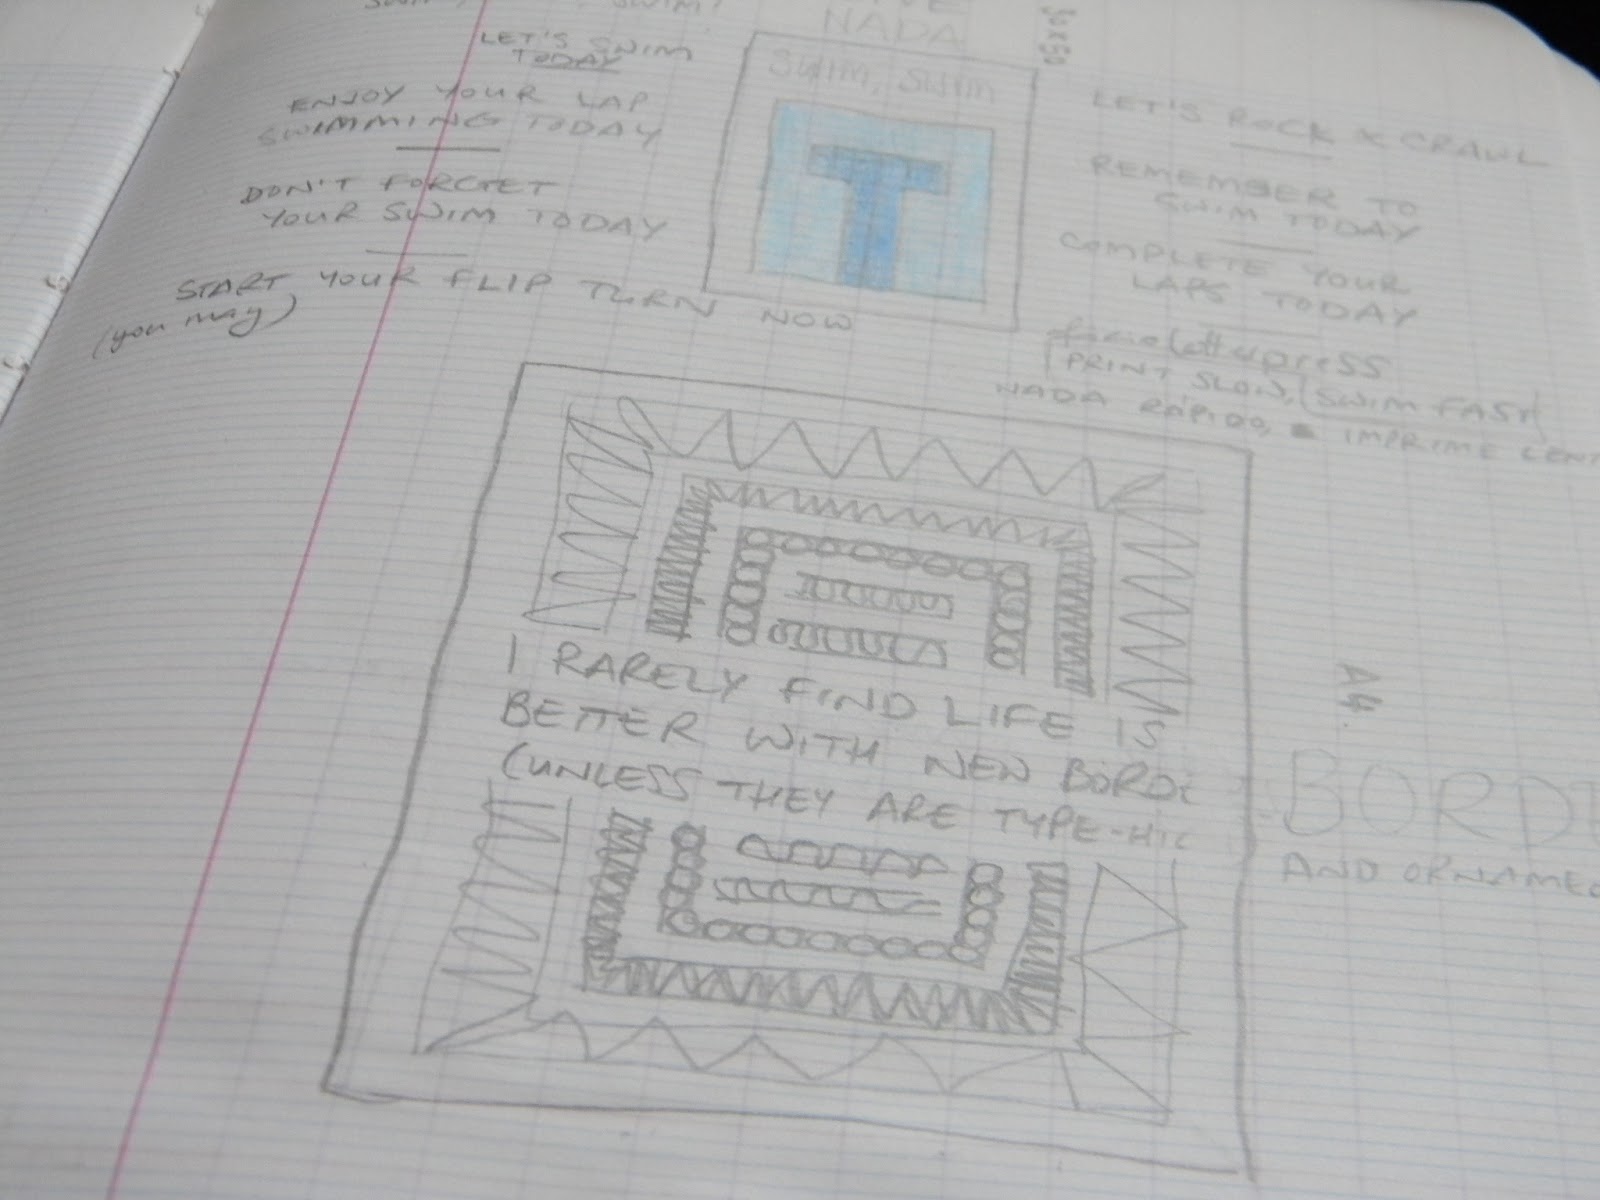 SWIM!
NADA
50x50
LET'S SWIM
TODAY
SWIM, SWIM
T
ENJOY YOUR LAP
SWIMMING TODAY
DON'T FORGET
YOUR SWIM TODAY
START YOUR FLIP TURN NOW
(you may)
LET'S ROCK & CRAWL
REMEMBER TO
SWIM TODAY
COMPLETE YOUR
LAPS TODAY
PRINT SLOW, (SWIM FAST)
NADA RÁPIDO, IMPRIME LENT
I RARELY FIND LIFE IS
BETTER WITH NEW BORDE
(UNLESS THEY ARE TYPE-HIC
A4.
BORDE
AND ORNAME